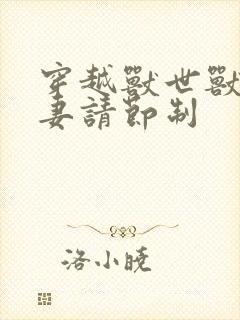 穿越獸世獸
妻請節制
洛小曉